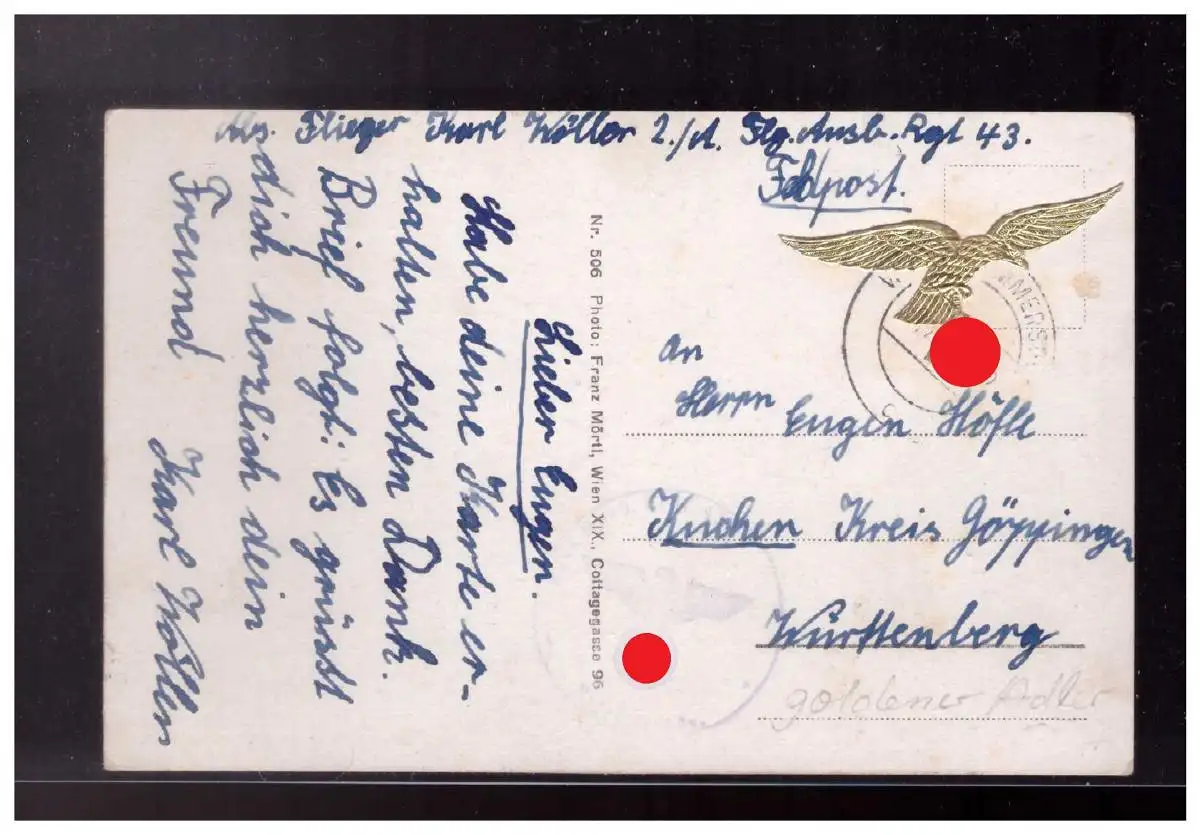 Abs. Flieger Karl Koller 2./A. Flg. Ausb. Rgt 43.
Feldpost.
Lieber Eugen.
Habe deine Karte er-
halten, besten Dank.
Brief folgt: Es grüsst
dich herzlich dein
Freund
Karl Koller
Nr. 506 Photo: Franz Mörtl, Wien XIX., Cottagegasse 96
An
Herrn Eugen Höfle
Kuchen Kreis Göppingen
Württenberg
goldener Adler